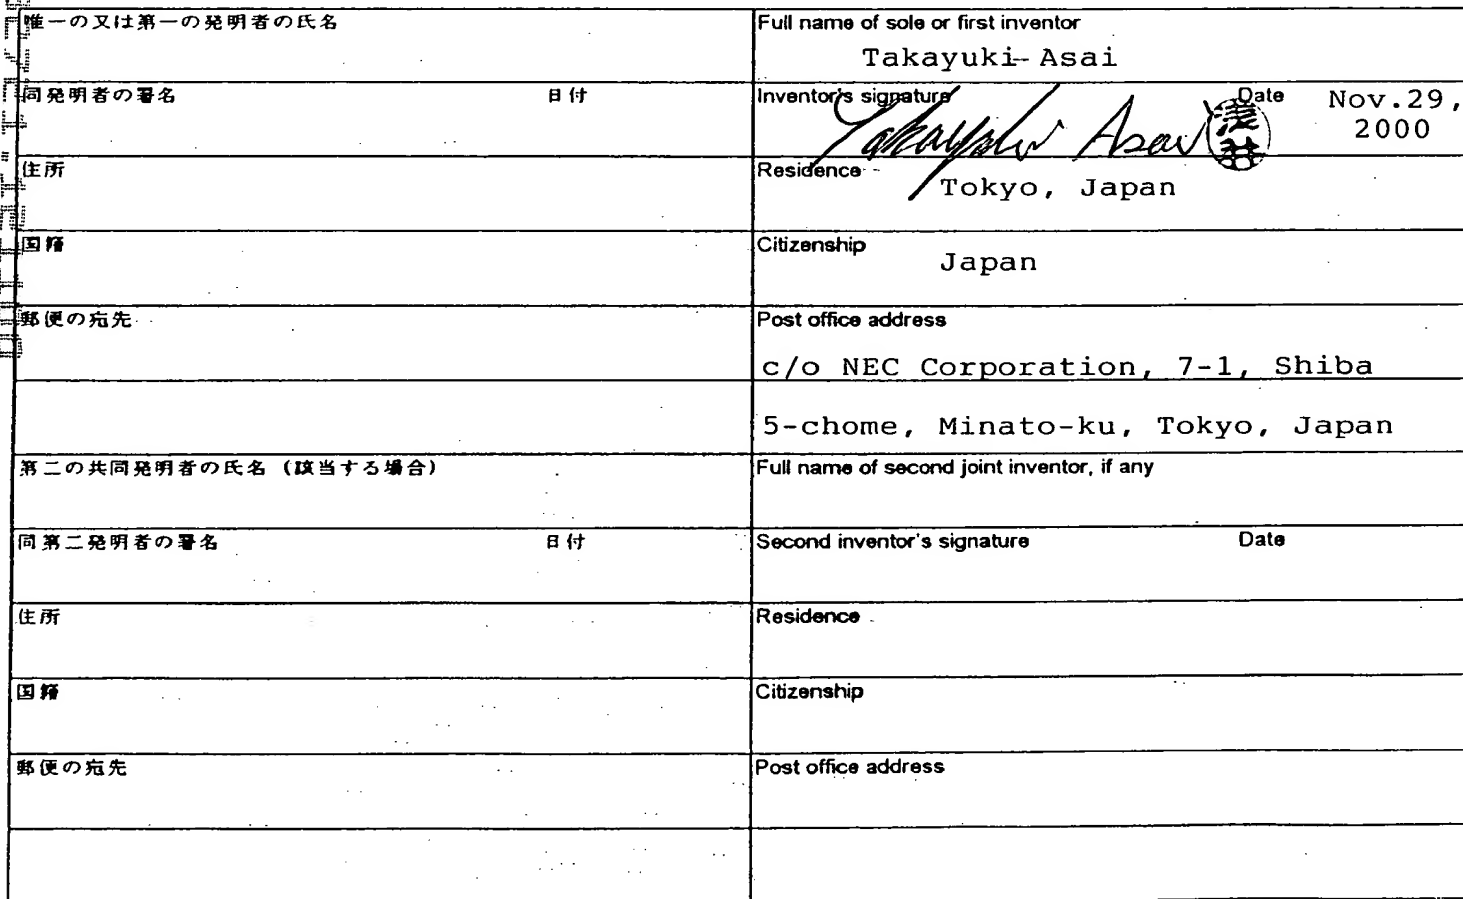 唯一の又は第一の発明者の氏名
Full name of sole or first inventor
Takayuki Asai
同発明者の署名 日付
Inventor's signature Date Nov.29,
2000
Takayuki Asai
住所
Residence
Tokyo, Japan
国籍
Citizenship
Japan
郵便の宛先
Post office address
c/o NEC Corporation, 7-1, Shiba
5-chome, Minato-ku, Tokyo, Japan
第二の共同発明者の氏名 (該当する場合)
Full name of second joint inventor, if any
同第二発明者の署名 日付
Second inventor's signature Date
住所
Residence
国籍
Citizenship
郵便の宛先
Post office address